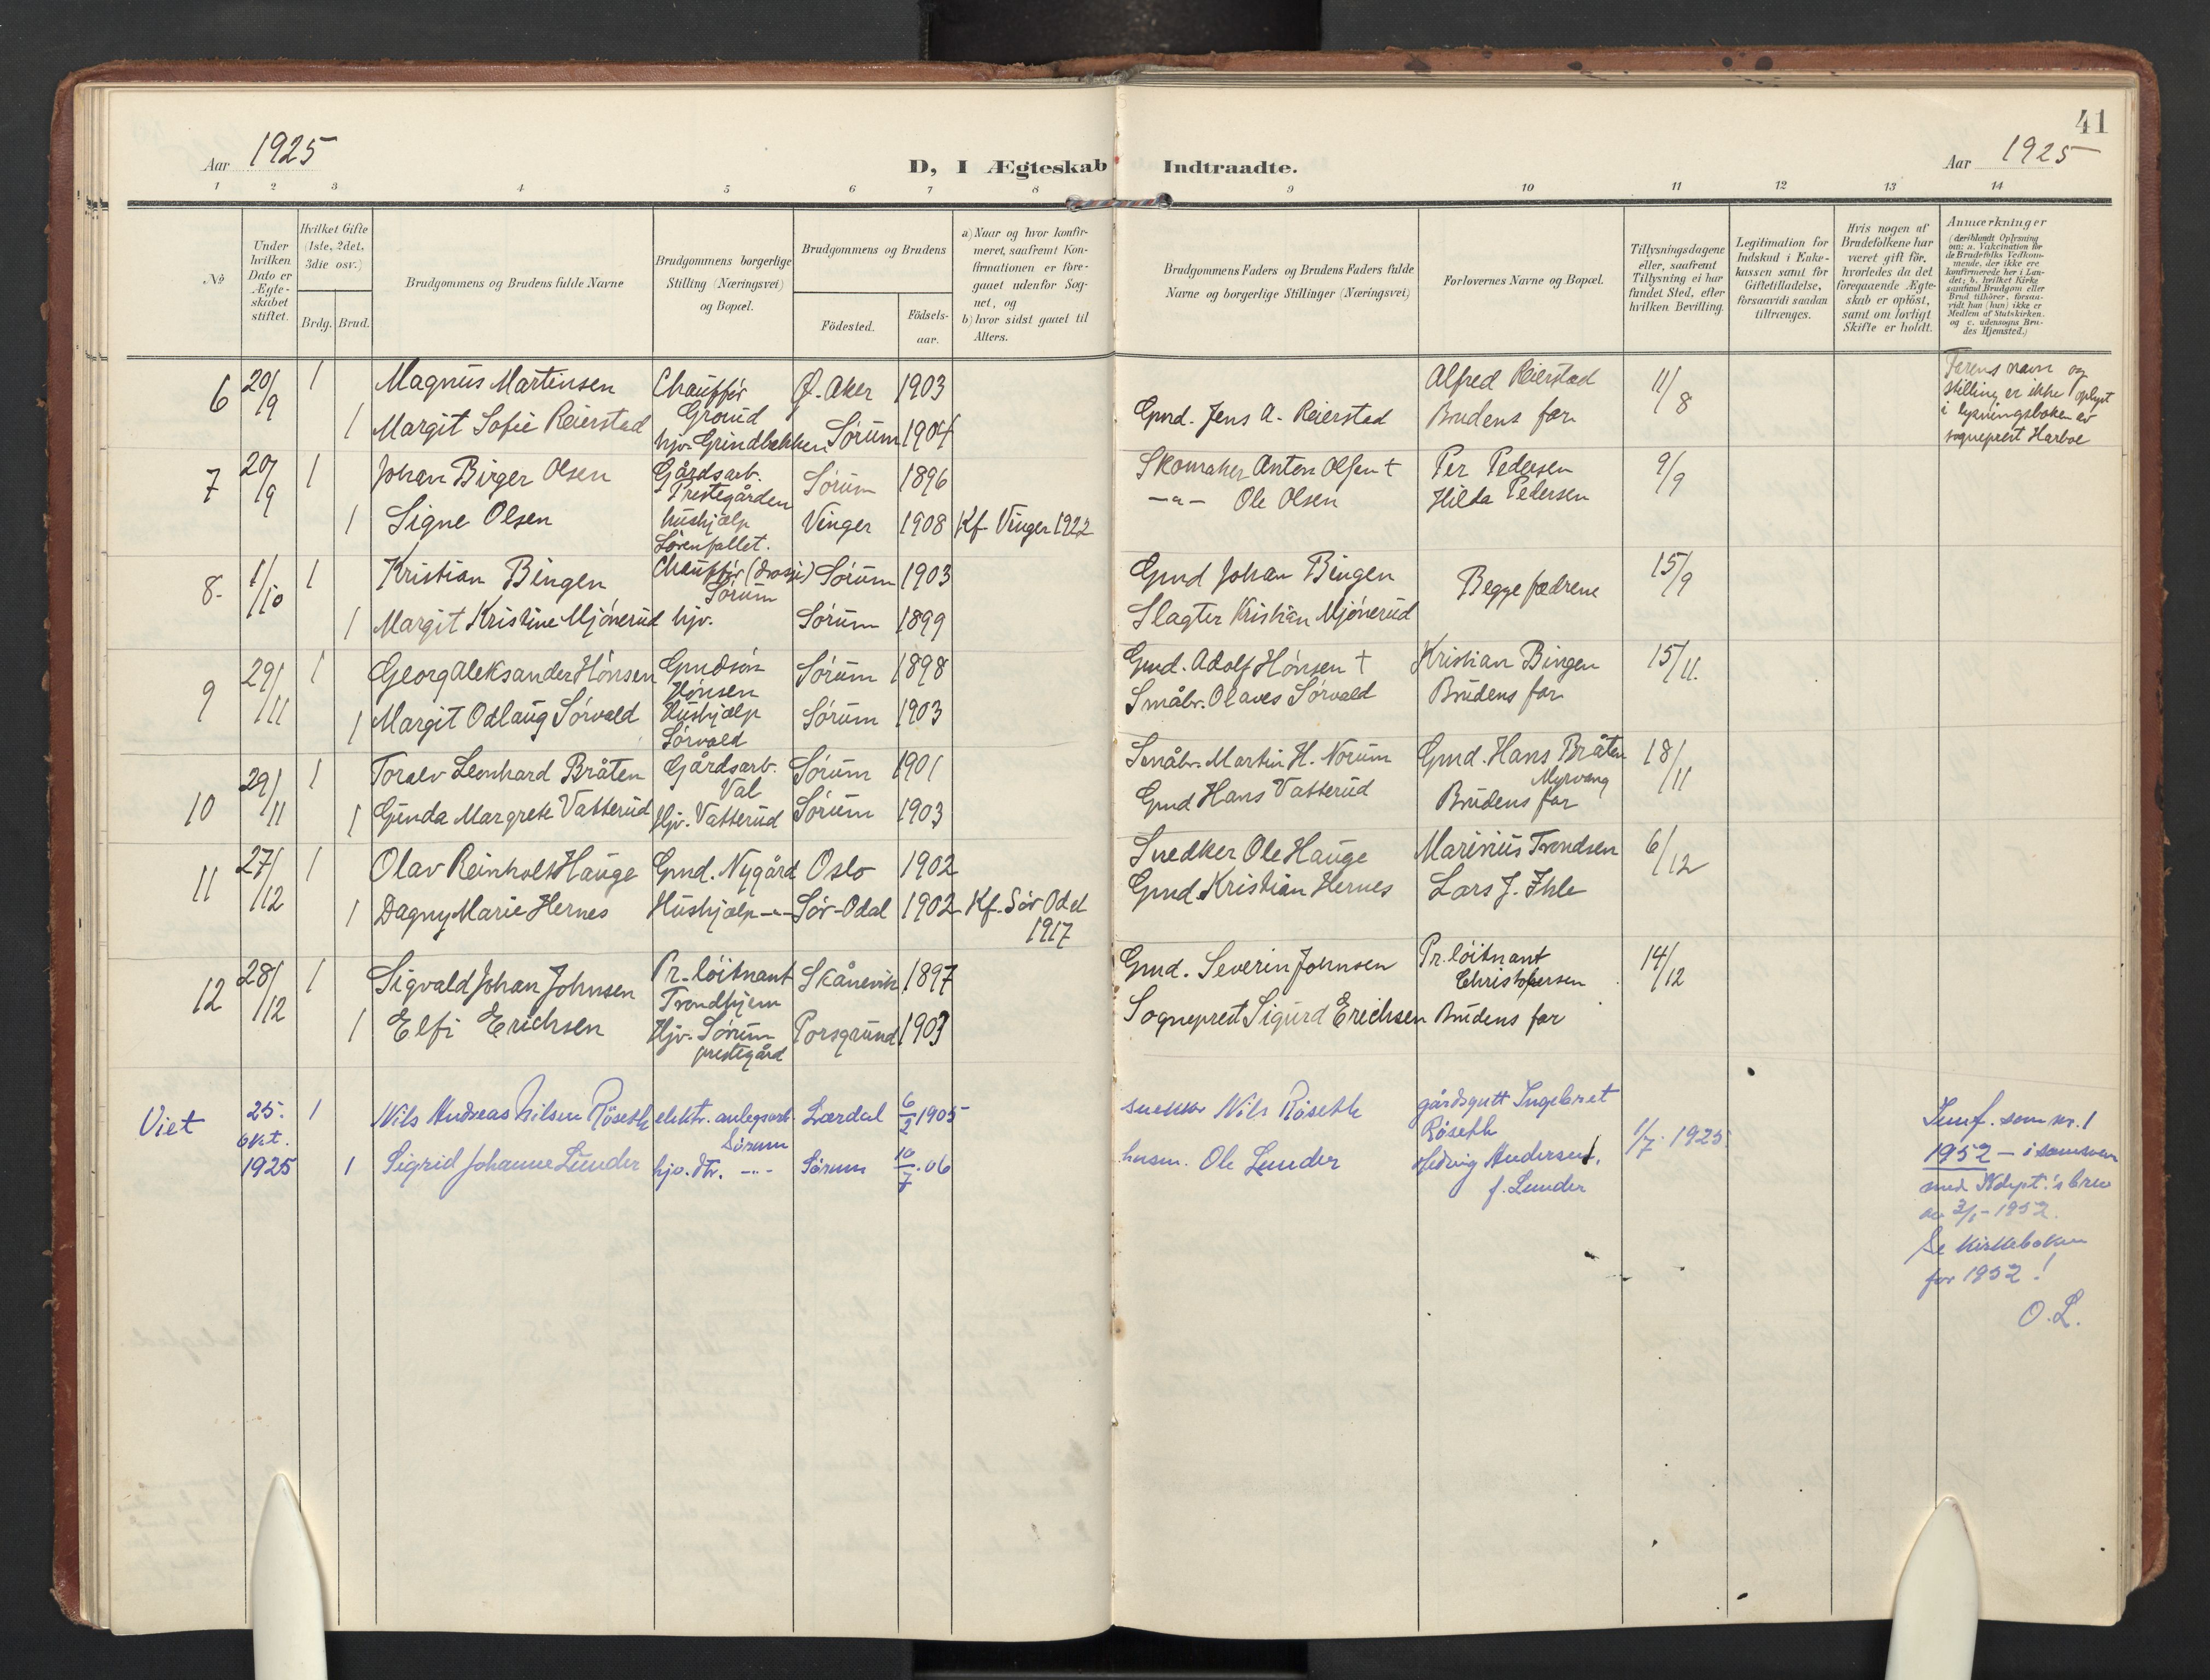 41
Aar 1925
D, I Ægteskab Indtraadte.
Aar 1925
1 2 3 4 5 6 7 8 9 10 11 12 13 14
No
Under hvilken Dato er Ægteskabet stiftet.
Hvilket Gifte (1ste, 2det, 3die osv.)
Brdg. Brud.
Brudgommens og Brudens fulde Navne
Brudgommens borgerlige Stilling (Næringsvei) og Bopæl.
Brudgommens og Brudens
Födested.
Födsels-aar.
a) Naar og hvor konfirmeret, saafremt Konfirmationen er foregaaet udenfor Sognet, og
b) hvor sidst gaaet til Alters.
Brudgommens Faders og Brudens Faders fulde Navne og borgerlige Stillinger (Næringsvei)
Forlovernes Navne og Bopæl.
Tillysningsdagene eller, saafremt Tillysning ei har fundet Sted, efter hvilken Bevilling.
Legitimation for Indskud i Enkekassen samt for Giftetilladelse, forsaavidt saadan tiltrænges.
Hvis nogen af Brudefolkene har været gift för, hvorledes da det foregaaende Ægteskab er oplöst, samt om lovligt Skifte er holdt.
Anmærkninger
(deriblandt Oplysning om: a. Vakcination for de Brudefolks Vedkommende, der ikke ere konfirmerede her i Landet; b. hvilket Kirkesamfund Brudgom eller Brud tilhörer, forsaavidt han (hun) ikke er Medlem af Statskirken, og c. udensogns Brudes Hjemsted.)
6 20/9 1 Magnus Martinsen Chauffør Grorud Ø. Aker 1903 Alfred Reierstad 11/8
1 Margit Sofie Reierstad hjv. Grindbakken Sørum 1904 Gmd. Jens A. Reierstad Brudens far
Farens navn og
stilling er ikke oplyst
i lysningsboken av
sogneprest Harboe
7 20/9 1 Johan Birger Olsen Gårdsarb. Prestegården Sørum 1896 Skomaker Anton Olsen † Per Pedersen 9/9
1 Signe Olsen hushjælp Sørenfallet. Vinger 1908 Kf. Vinger 1922 —"— Ole Olsen Hilda Pedersen
8. 1/10 1 Kristian Bingen Chauffør (drosje) Sørum Sørum 1903 Gmd Johan Bingen Begge fædrene 15/9
1 Margit Kristine Mjønerud hjv. Sørum 1899 Slagter Kristian Mjønerud
9 29/11 1 Georg Aleksander Hønsen Gmdsøn Hønsen Sørum 1898 Gmd. Adolf Hønsen † Kristian Bingen 15/11.
1 Margit Odlaug Sørvald Hushjælp Sørvald Sørum 1903 Småbr. Olaves Sørvald Brudens far
10 29/11 1 Toralv Leonhard Bråten Gårdsarb. Val Sørum 1901 Småbr. Martin H. Norum Gmd. Hans Bråten Myrvang 18/11
1 Gunda Margrete Vatterud Hjv. Vatterud Sørum 1903 Gmd Hans Vatterud Brudens far
11 27/12 1 Olav Reinholt Hauge Gmd. Nygård Oslo 1902 Snedker Ole Hauge Marinius Trondsen 6/12
1 Dagny Marie Hernes Hushjælp —"— Sør-Odal 1902 Kf. Sør Odal 1917 Gmd Kristian Hernes Lars J. Ihle
12 28/12 1 Sigvald Johan Johnsen Pr.-løitnant Trondhjem Skånevik 1897 Gmd. Severin Johnsen Pr. løitnant Christophersen 14/12
1 Elfi Erichsen Hjv. Sørum prestegård Porsgrund 1903 Sogneprest Sigurd Erichsen Brudens far
Viet 25. okt. 1925 1 Nils Andreas Nilsen Röseth elektr. anlegsarb. Sørum Lærdal 6/2 1905 snekker Nils Röseth gårdsgutt Ingebret Röseth 1/7. 1925.
1 Sigrid Johanne Lunder hjv. dtr. —"— Sørum 16/7.06 husm. Ole Lunder Hedvig Andersen, f. Lunder
Innf. som nr. 1
1952 — i samsvar
med Kdept.'s brev
av 3/1-1952.
Se kirkeboken
for 1952!
O. L.